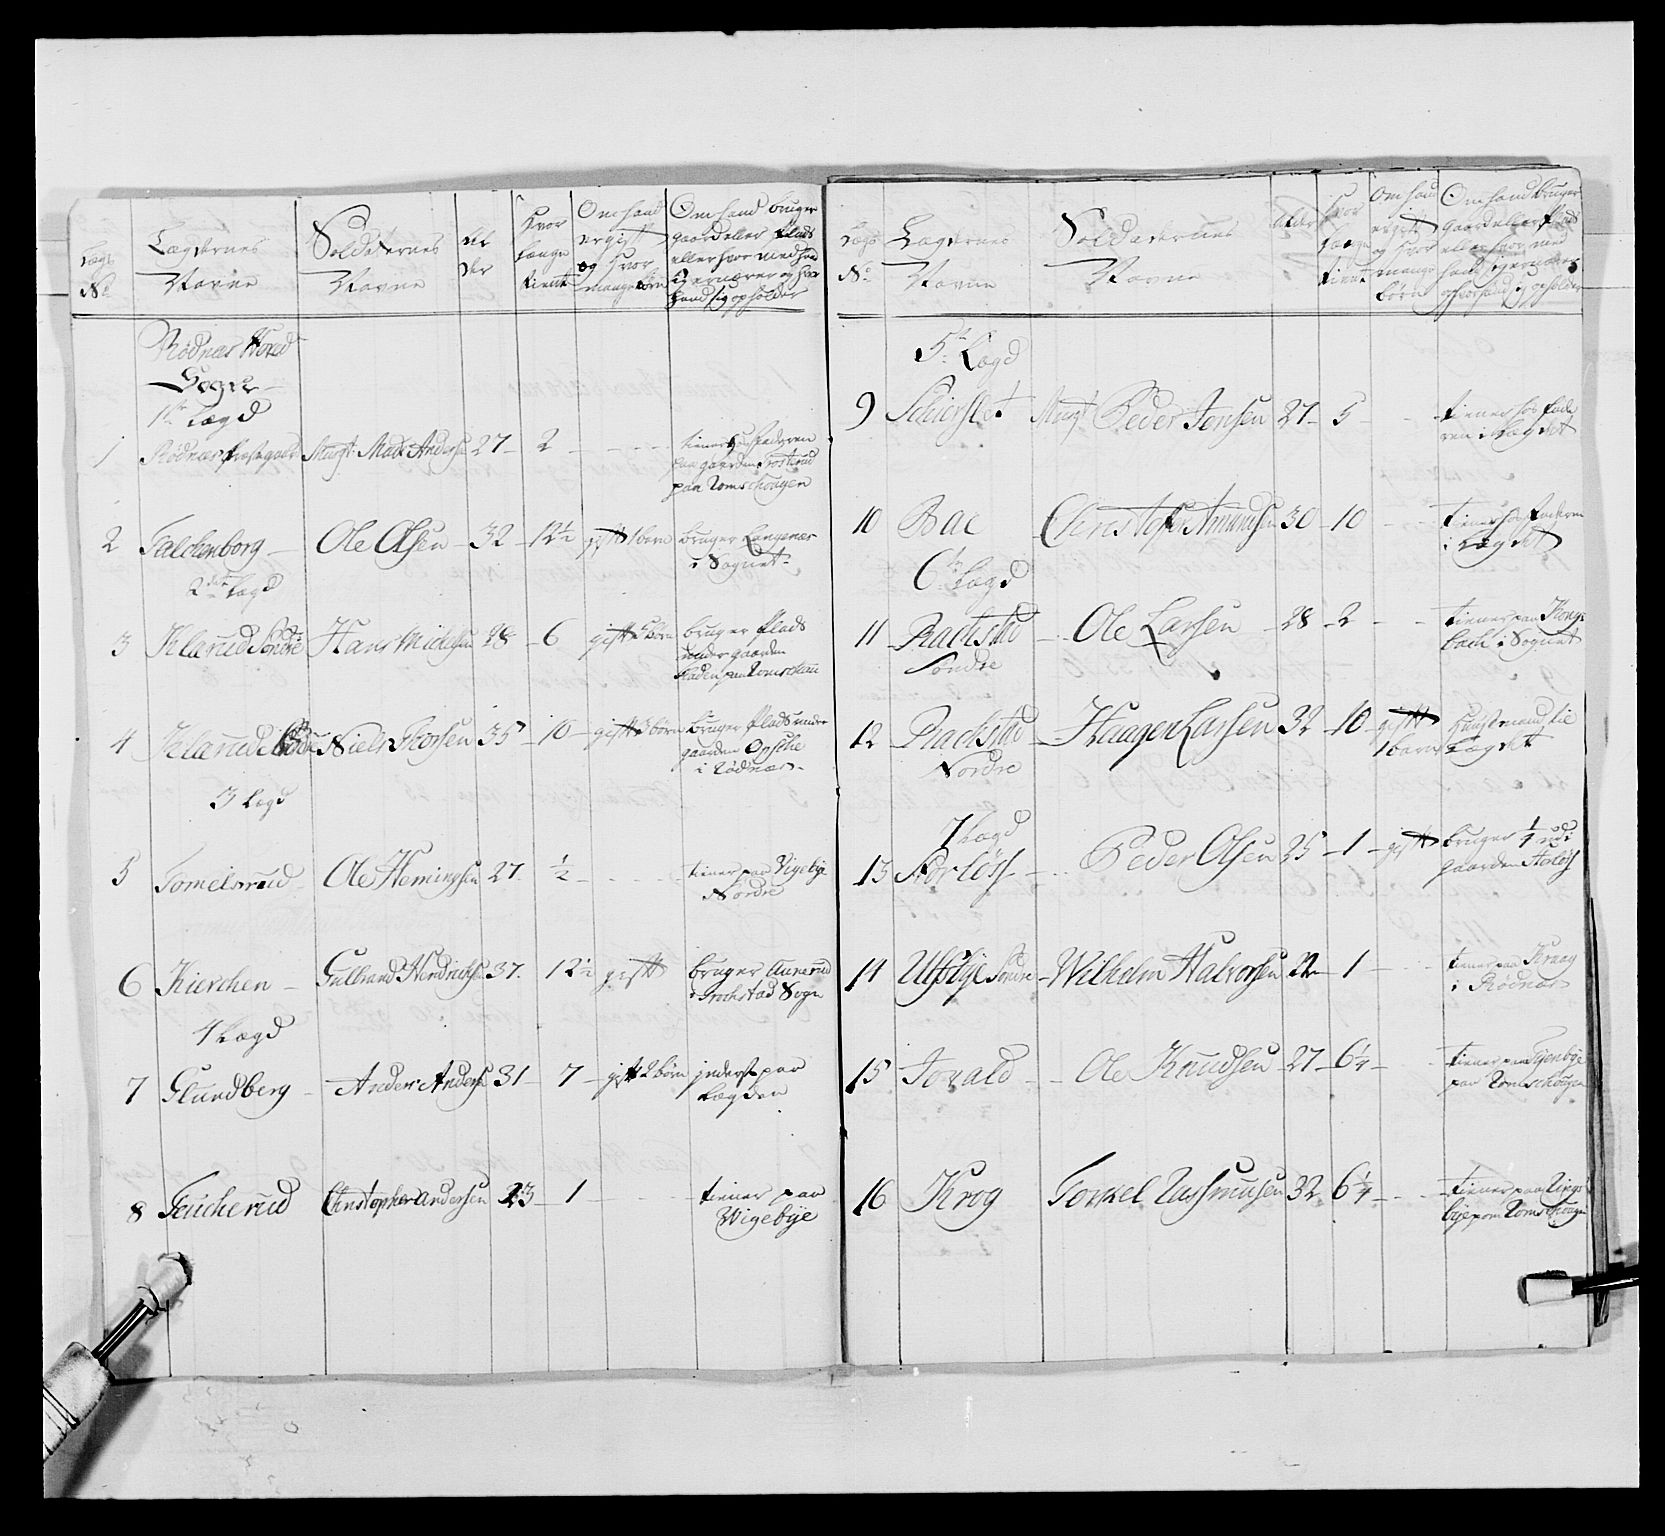 Lægs No
Lægdernes Navne
Soldaternes Navne
Alder
Hvor længe tient
Om hand er gift og hvor mange børn
Om hand bruger gaard eller Plads eller hvor med hand sig ernærer og hvor hand sig opholder
Rødnæs Hoved
Sogn
1ste Lægd
1 Rødnæs Præstegaard Mursqt Mads Andersen 27 - 2 - - - - tiener hos Faderen
paa gaarden Trosterud
paa Romschougen
2 Falckenborg - Ole Olsen - 32 - 12½ gift 1 barn bruger Langenæs
i Sognet -
2den Lægd
3 Klarud Søndre Hans Mickelsen 28 - 6 gift børn bruger Plads
under gaarden
paa Romschou
4 Klarud Niels Thorsen 35 - 10 - gift 3 børn bruger Plads under
gaarden Opsche
i Rødnæs -
3 Lægd
5 Tomelsrud - Ole Hemingsen 27. ½ - - - - tiener paa Vigebye
Nordre
6 Kierchen - Gulbrand Hendrichsen 37. 12½ gift bruger Aunerud
i Trochstad Sogn
4 Lægd
7 Glundberg - Anders Andersen 31 - 7 - gift 2 børn inderst paa
Lægden
8 Faucherud Christopher Andersen 23 - 1 - - - tiener paa
Wigebye
Lægs No
Lægdernes Navne
Soldaternes Navne
Alder
Hvor længe tient
Om hand er gift og hvor mange børn
Om hand bruger gaard eller Plads eller hvor med hand sig ernærer og hvor hand sig opholder
5te Lægd
9 Schierslet Mursqt Peder Jonsen 27 - 5 - - tiener hos Fade
ren i Lægdet
10 Bae Christofer Amundsen 30 - 10 - - tiener hos Faderen
i Lægdet
6te Lægd
11 Rachestad - Ole Larsen - 28 - 2 - - tiener paa Kongs
bach i Sognet
Søndre
12 Rackestad - Haagen Larsen 32 - 10 - gift
1 barn
Huusmand til
Lægdet
Nordre
7 Lægd
13 Korløs - - Peder Olsen 25 - 1 - gift bruger ¼ udi
gaarden Korløs
14 Ulfsbye Søndre - Wilhelm Halvorsen 22 - 1 - - - tiener paa Kraag
i Rødnæs
15 Jovald - - Ole Knudsen - 27 - 6¼ - - tiener paa Tyenbye
paa Romschougen
16 Krog Torkel Rasmusen 32 6¼ - - - tiener paa Rings
bye paa Romschougen